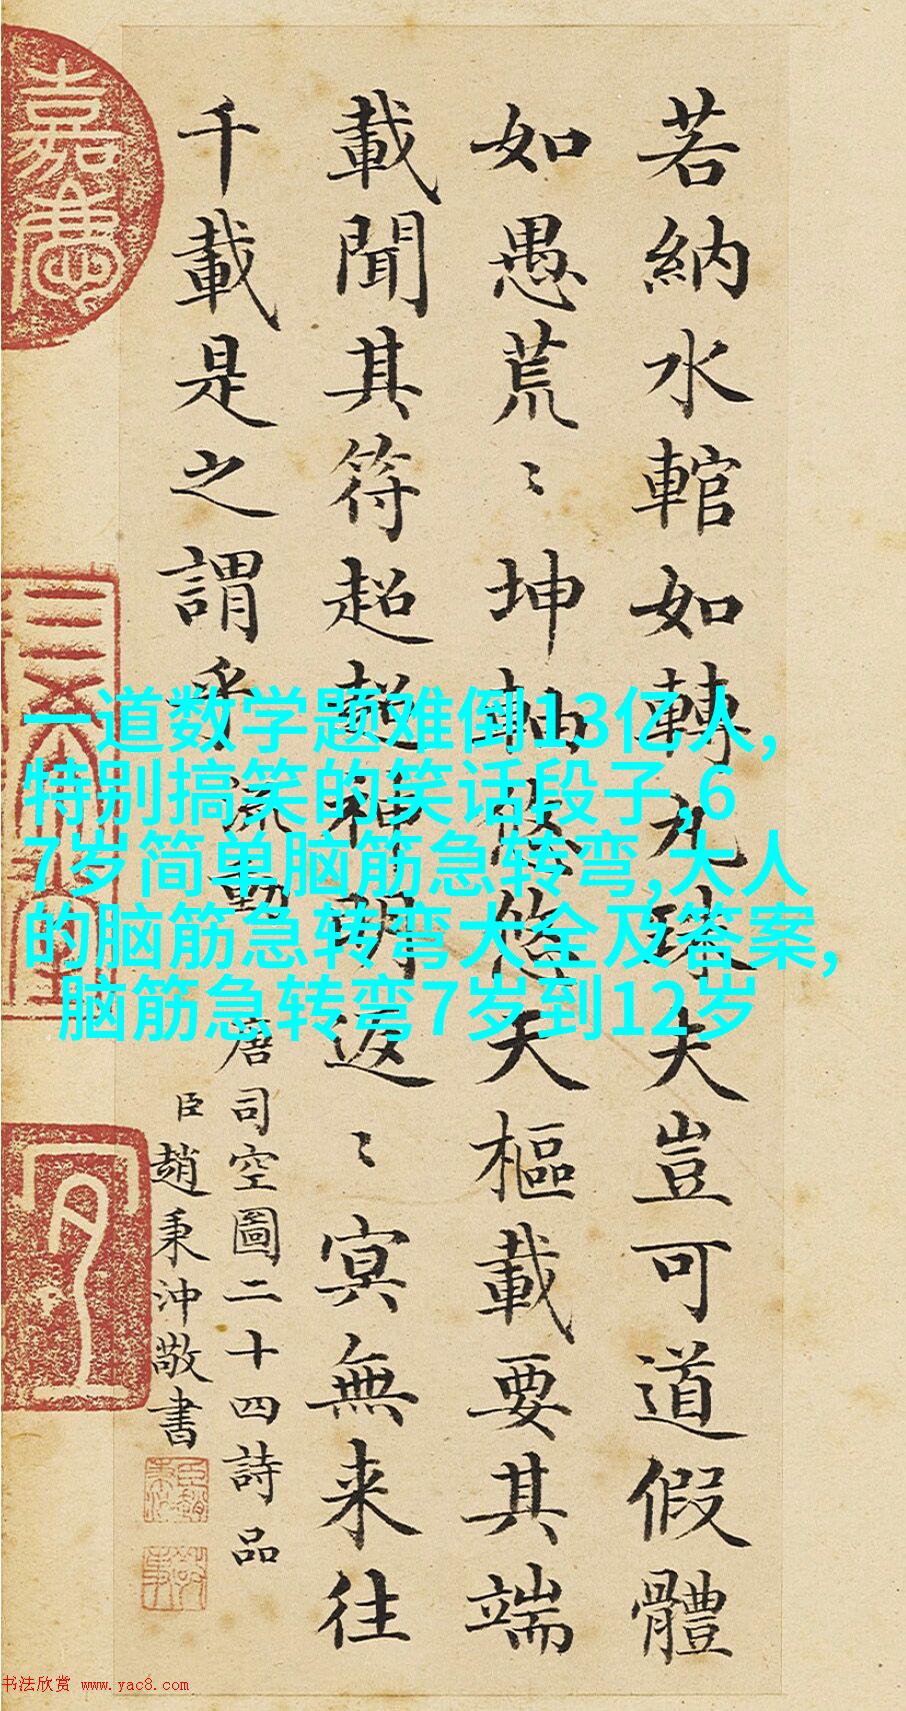 若納水輨如轉丸珠夫豈可道假體
如愚荒〻坤軸悠悠天樞載要其端
載聞其符超超神明返〻冥無来往
千載是之謂乎 流動
唐司空圖二十四詩品
臣趙秉沖敬書
嘉慶
三希堂
宜
一道数学题难倒13亿人,
特别搞笑的笑话段子,6
7岁简单脑筋急转弯,大人
的脑筋急转弯大全及答案,
脑筋急转弯7岁到12岁
书法欣赏 www.yac8.com